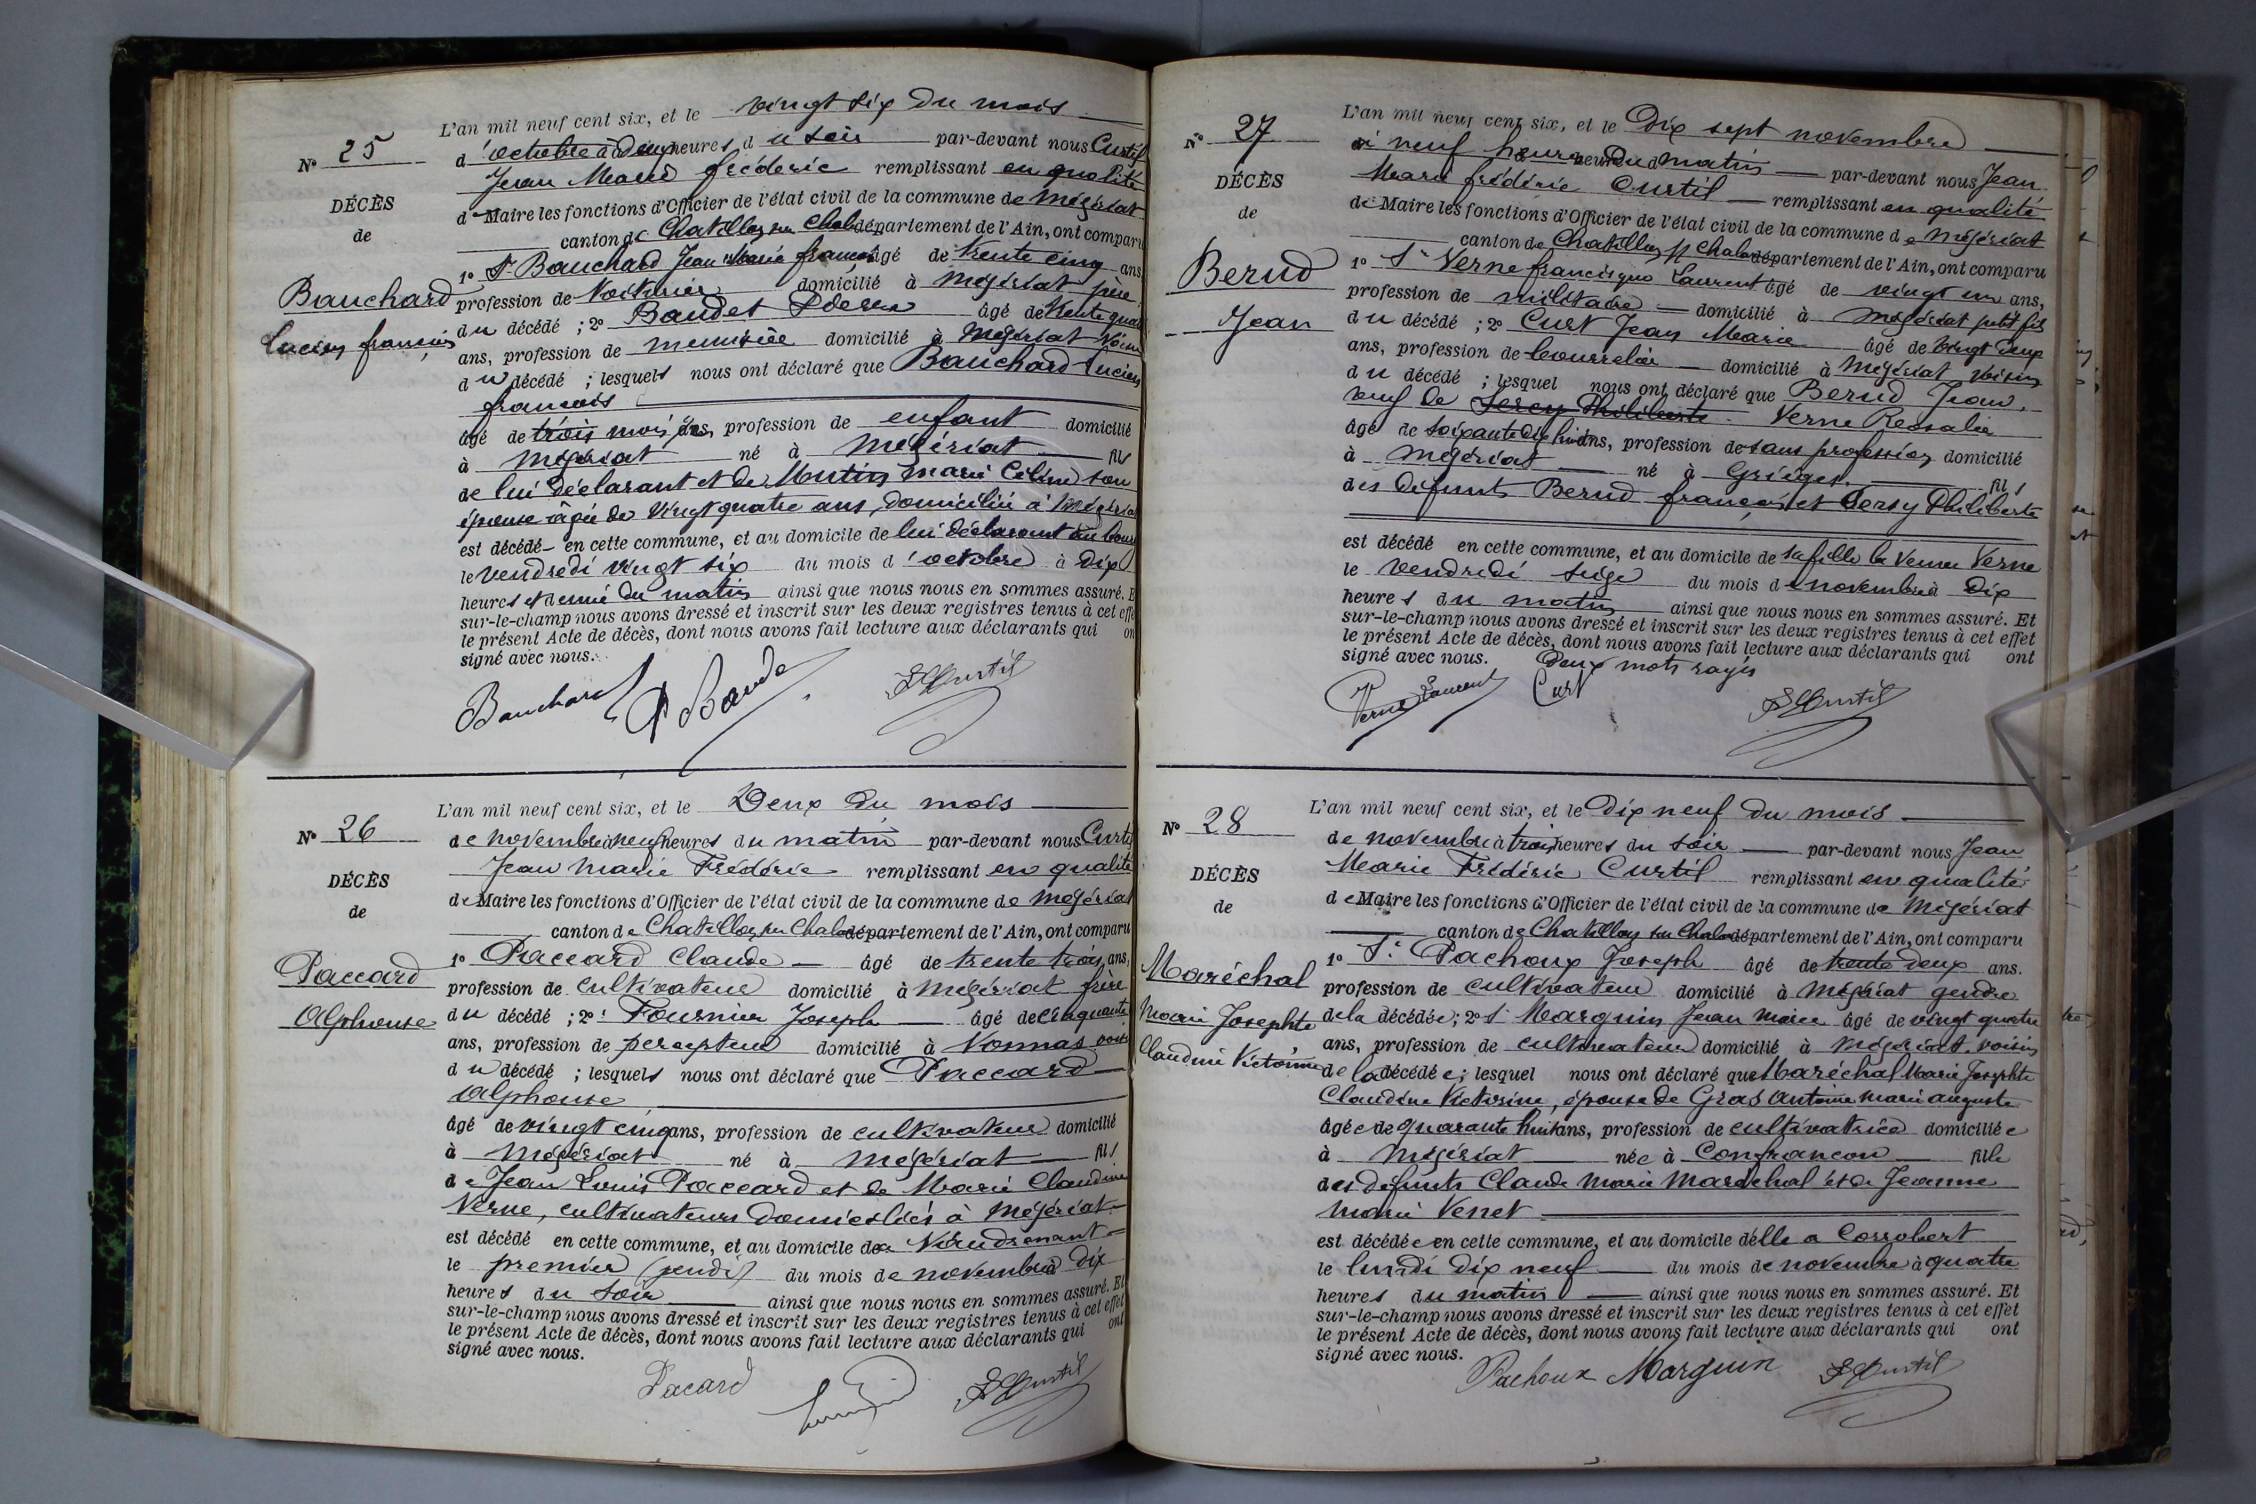 L'an mil neuf cent six, et le vingt six du mois
N° 25
d'octobre à deux heures du soir par-devant nous Curtil
Jean Marie frédéric remplissant en qualité
DÉCÈS
de Maire les fonctions d'Officier de l'état civil de la commune de Mézériat
de
canton de Chatillon sur Chal département de l'Ain, ont comparu
1° Sr Bauchard Jean Marie françois âgé de trente cinq ans
Bauchard
profession de Voiturier domicilié à Mézériat père
Lucien françois
du décédé ; 2° Baudet âgé de trente quat
ans, profession de menuisier domicilié à Mézériat Voisin
du décédé ; lesquels nous ont déclaré que Bauchard Lucien
francois
âgé de trois mois ans, profession de enfant domicilié
à Mézériat né à Mézériat fils
de lui déclarant et de Mutin Marie Céline son
épouse âgée de vingt quatre ans, domiciliée à Mézériat
est décédé en cette commune, et au domicile de lui déclarant au bourg
le vendredi vingt six du mois d'octobre à dix
heures et demie du matin ainsi que nous nous en sommes assuré. E
sur-le-champ nous avons dressé et inscrit sur les deux registres tenus à cet effe
le présent Acte de décès, dont nous avons fait lecture aux déclarants qui on
signé avec nous.
Bauchard P Baude Curtil
L'an mil neuf cent six, et le Deux du mois
N° 26
de novembre à neuf heures du matin par-devant nous Curtil
Jean Marie Frédéric remplissant en qualité
DÉCÈS
de Maire les fonctions d'Officier de l'état civil de la commune de Mézériat
de
canton de Chatillon sur Chal département de l'Ain, ont comparu
1° Paccard Claude âgé de trente trois ans,
Paccard
profession de cultivateur domicilié à Mézériat frère
Alphonse
du décédé ; 2° Fournier Joseph âgé de cinquante
ans, profession de percepteur domicilié à Vonnas voisi
du décédé ; lesquels nous ont déclaré que Paccard
Alphonse
âgé de vingt cinq ans, profession de cultivateur domicilié
à Mézériat né à Mézériat fils
de Jean Louis Paccard et de Marie Claudine
Verne, cultivateurs domiciliés à Mézériat
est décédé en cette commune, et au domicile de
le premier (jeudi) du mois de novembre à dix
heures du soir ainsi que nous nous en sommes assuré. Et
sur-le-champ nous avons dressé et inscrit sur les deux registres tenus à cet effet
le présent Acte de décès, dont nous avons fait lecture aux déclarants qui ont
signé avec nous.
Pacard Curtil
L'an mil neuf cent six, et le Dix sept novembre
N° 27
à neuf heures heures du matin par-devant nous Jean
Marie frédéric Curtil remplissant en qualité
DÉCÈS
de Maire les fonctions d'Officier de l'état civil de la commune de Mézériat
de
canton de Chatillon s/ Chal département de l'Ain, ont comparu
Berud
1° Sr Verne francisque Laurent âgé de vingt un ans,
profession de militaire domicilié à Mézériat petit fils
Jean
du décédé ; 2° Curt Jean Marie âgé de vingt deux
ans, profession de bourrelier domicilié à Mézériat voisin
du décédé ; lesquel nous ont déclaré que Berud Jean,
veuf de Sersy Philiberte Verne Rosalie
âgé de soixante dix huit ans, profession de sans profession domicilié
à Mézériat né à Grièges fils
des défunts Berud françois et Sersy Philiberte
est décédé en cette commune, et au domicile de sa fille la Veuve Verne
le vendredi seize du mois de novembre à dix
heures du matin ainsi que nous nous en sommes assuré. Et
sur-le-champ nous avons dressé et inscrit sur les deux registres tenus à cet effet
le présent Acte de décès, dont nous avons fait lecture aux déclarants qui ont
signé avec nous. deux mots rayés
Verne Laurent Curt Curtil
L'an mil neuf cent six, et le Dix neuf du mois
N° 28
de novembre à trois heures du soir par-devant nous Jean
Marie Frédéric Curtil remplissant en qualité
DÉCÈS
de Maire les fonctions d'Officier de l'état civil de la commune de Mézériat
de
canton de Chatillon sur Chal département de l'Ain, ont comparu
Maréchal
1° Sr Pachoux Joseph âgé de trente deux ans.
profession de cultivateur domicilié à Mézériat gendre
Marie Josephte
de la décédée; 2° Sr Marguin Jean Marie âgé de vingt quatre
ans, profession de cultivateur domicilié à Mézériat voisin
Claudine Victorine
de la décédée; lesquel nous ont déclaré que Maréchal Marie Josephte
Claudine Victorine, épouse de Gras Antoine Marie Auguste
âgée de quarante huit ans, profession de cultivatrice domiciliée
à Mézériat née à Confrançon fille
des défunts Claude Marie Maréchal et de Jeanne
Marie Venet
est décédée en cette commune, et au domicile d'elle a Corrobert
le lundi dix neuf du mois de novembre à quatre
heures du matin ainsi que nous nous en sommes assuré. Et
sur-le-champ nous avons dressé et inscrit sur les deux registres tenus à cet effet
le présent Acte de décès, dont nous avons fait lecture aux déclarants qui ont
signé avec nous.
Pachoux Marguin Curtil